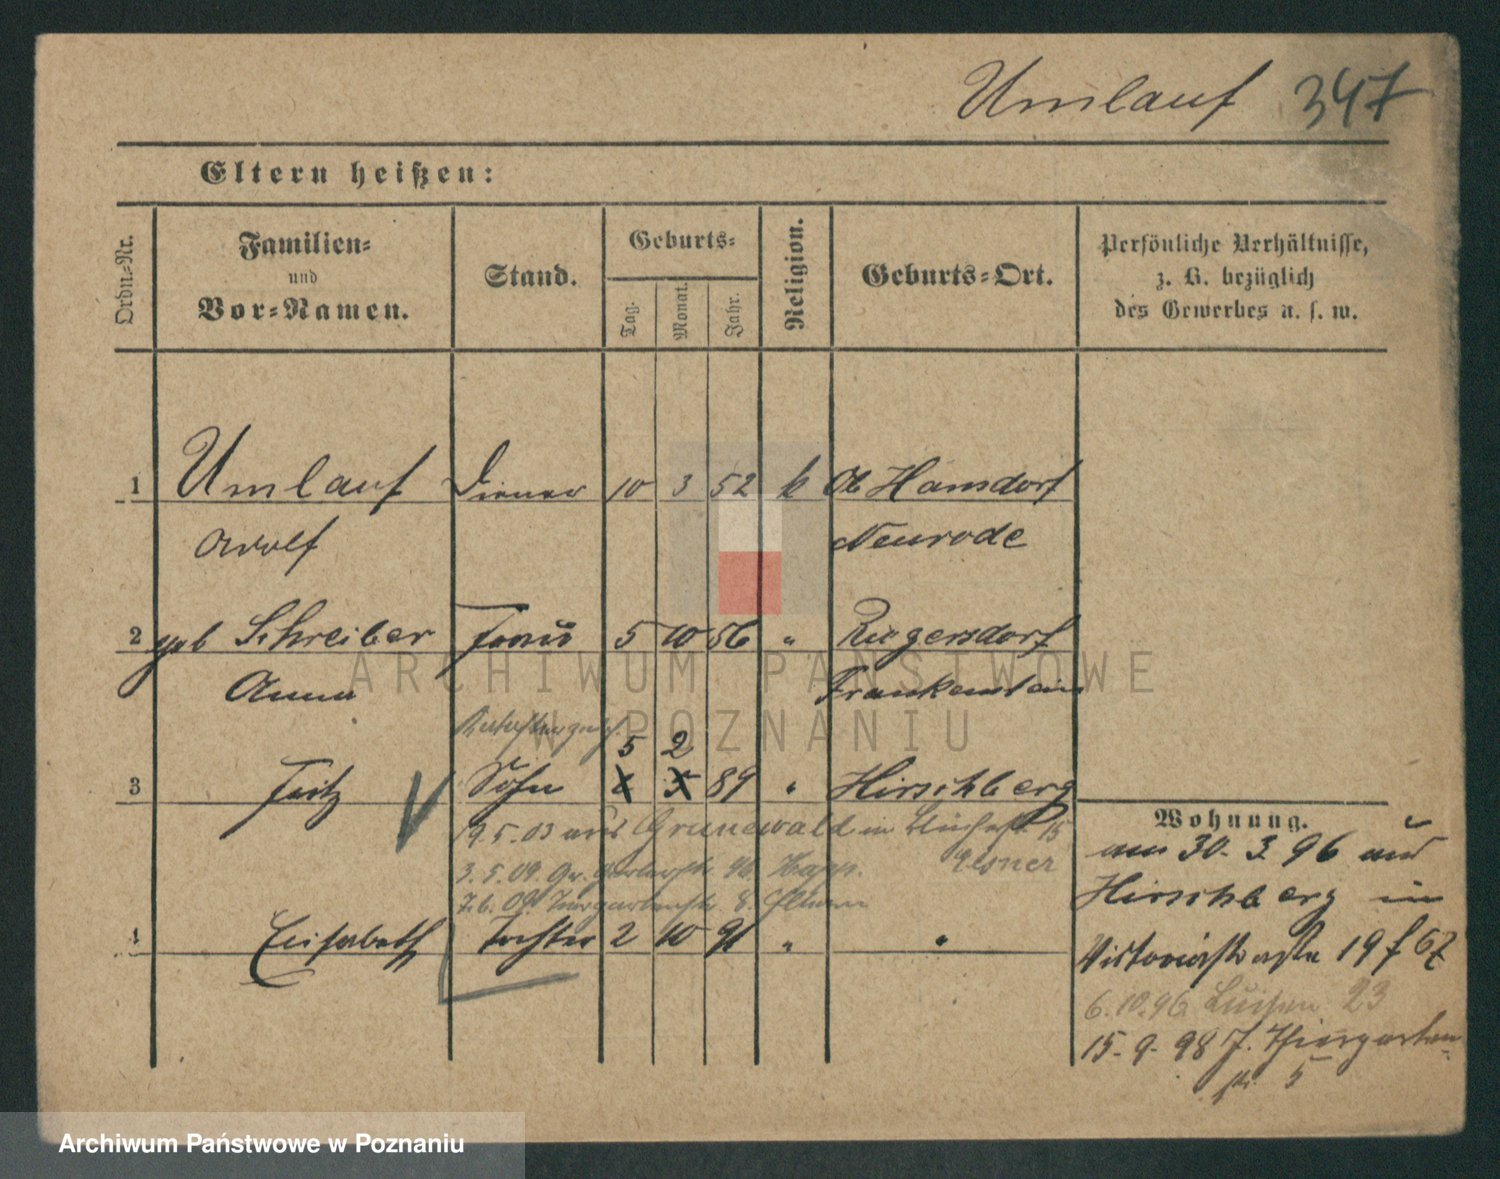 Umlauf 347
Eltern heißen:
Ordn=Nr.
Familien=
und
Vor=Namen.
Stand.
Geburts=
Tag.
Monat.
Jahr.
Religion.
Geburts=Ort.
Persönliche Verhältnisse,
z. B. bezüglich
des Gewerbes u. s. w.
1 Umlauf Diener 10 3 52 k Ob Hansdorf
Adolf Neurode
2 geb Schreiber Frau 5 10 56 " Riegersdorf
Anna Frankenstein
5 2
3 Fritz Sohn 89 " Hirschberg
19.5.03 aus Grunewald in 15
3.5.09. Gr.
7.6.09. Tiergartenstr. 8.
4 Elisabeth Tochter 2 10 91 " "
Wohnung.
am 30. 3. 96 aus
Hirschberg in
Victoriastraße 19 f 67
6.10.96 Luisen 23
15. 9. 98 Thiergarten-
str. 5
ARCHIWUM PAŃSTWOWE
W POZNANIU
Archiwum Państwowe w Poznaniu